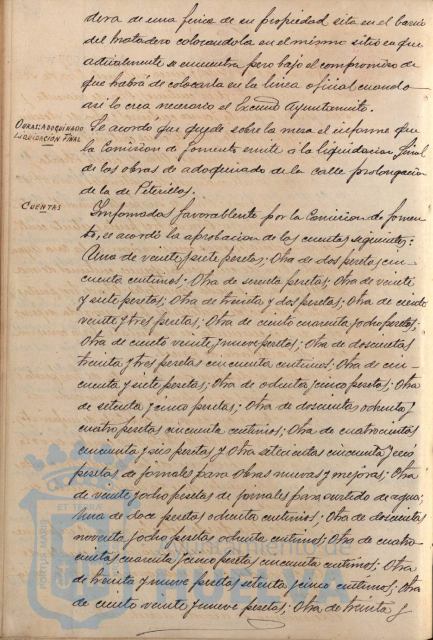 dera de una finca de su propiedad sita en el barrio
del matadero colocandola en el mismo sitio en que
actualmente se encuentra pero bajo el compromiso de
que habrá de colocarla en la linea oficial cuando
asi lo crea necesario el Excmo Ayuntamiento.
OBRAS: ADOQUINADO
LIQUIDACIÓN FINAL
Se acordó que quede sobre la mesa el informe que
la Comision de fomento emite á la liquidacion final
de las obras de adoquinado de la calle prolongacion
de la de
CUENTAS
Informadas favorablemente por la Comision de fomen-
to, se acordó la aprobacion de las cuentas siguientes:
Una de veinte y siete pesetas; Otra de dos pesetas cin-
cuenta centimos; Otra de sesenta pesetas; Otra de veinte
y siete pesetas; Otra de treinta y dos pesetas; Otra de ciento
veinte y tres pesetas; Otra de ciento cuarenta y ocho pesetas;
Otra de ciento veinte y nueve pesetas; Otra de doscientas
treinta y tres pesetas cincuenta centimos; Otra de cin-
cuenta y siete pesetas; Otra de ochenta y cinco pesetas; Otra
de setenta y cinco pesetas; Otra de doscientas ochenta y
cuatro pesetas cincuenta centimos; Otra de cuatrocientas
cincuenta y seis pesetas y Otra setecientas cincuenta y seis
pesetas de jornales para obras nuevas y mejoras; Otra
de veinte y ocho pesetas de jornales para surtido de agua;
Una de doce pesetas ochenta centimos; Otra de doscientas
noventa y ocho pesetas ochenta centimos; Otra de cuatro-
cientas cuarenta y cinco pesetas cincuenta centimos; Otra
de treinta y nueve pesetas setenta y cinco centimos; Otra
de ciento veinte y nueve pesetas; Otra de treinta y
PORTUS MARIS ET TERRAE
Ayuntamiento de
HUELVA